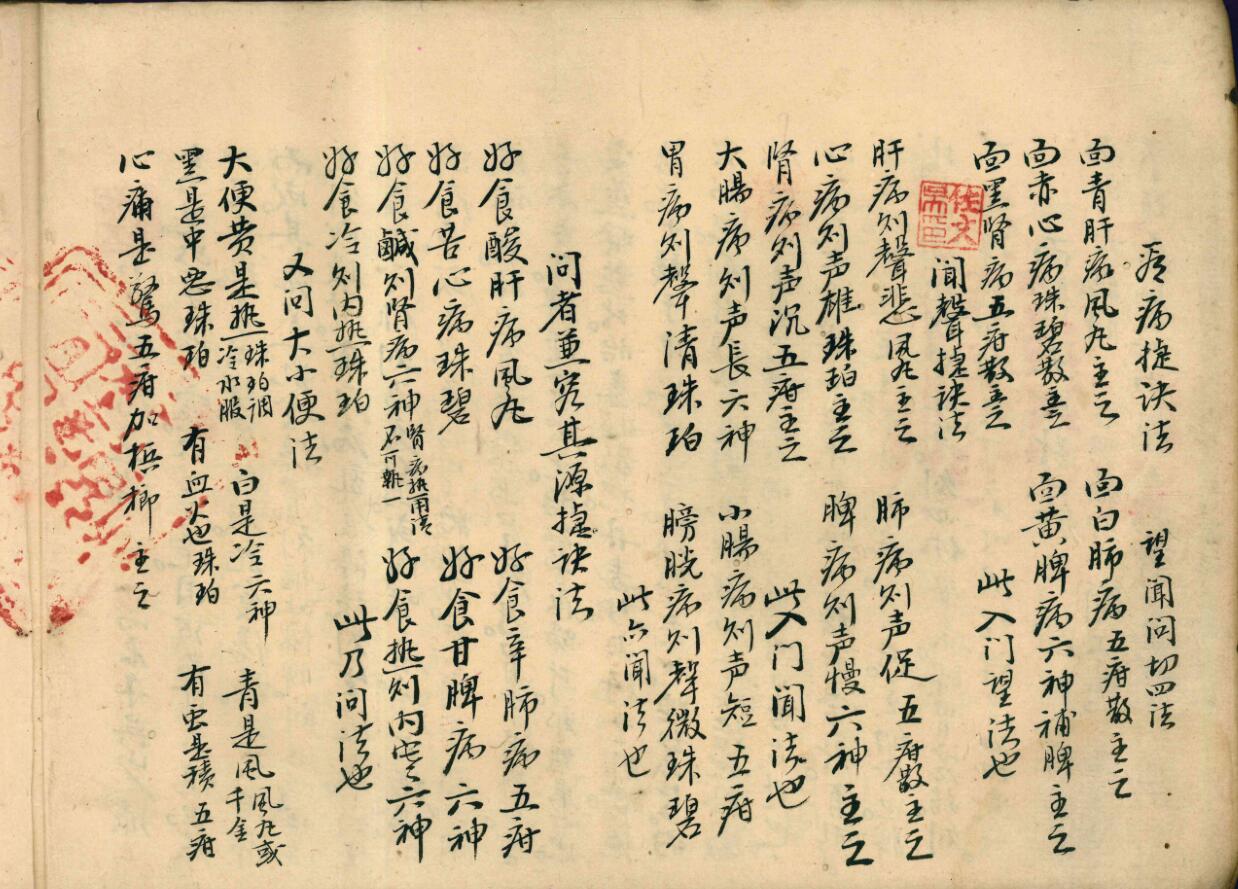 看病捷诀法 望聞问切四法
面青肝病風丸主之 面白肺病五疳散主之
面赤心病珠碧散主之 面黄脾病六神補脾主之
面黑肾病五疳散主之 此入门望法也
聞聲捷诀法
肝病则聲悲風丸主之 肺病则声促五疳散主之
心病则声雄珠珀主之 脾病则声慢六神主之
肾病则声沉五疳主之 此入门闻法也
大腸病则声長六神 小腸病则声短五疳
胃病则聲清珠珀 膀胱病则聲微珠碧
此亦聞法也
问者並究其源捷诀法
好食酸肝病風丸 好食辛肺病五疳
好食苦心病珠碧 好食甘脾病六神
好食鹹则肾病六神 好食热则内寒六神
好食冷则内热珠珀 此乃问法也
又问大小便法
大便黄是热珠珀调冷水服 白是冷六神 青是風風丸或千金
黑是中恶珠珀 有血火也珠珀 有虫是積五疳
心痛是驚五疳加梹榔主之
任文昴印